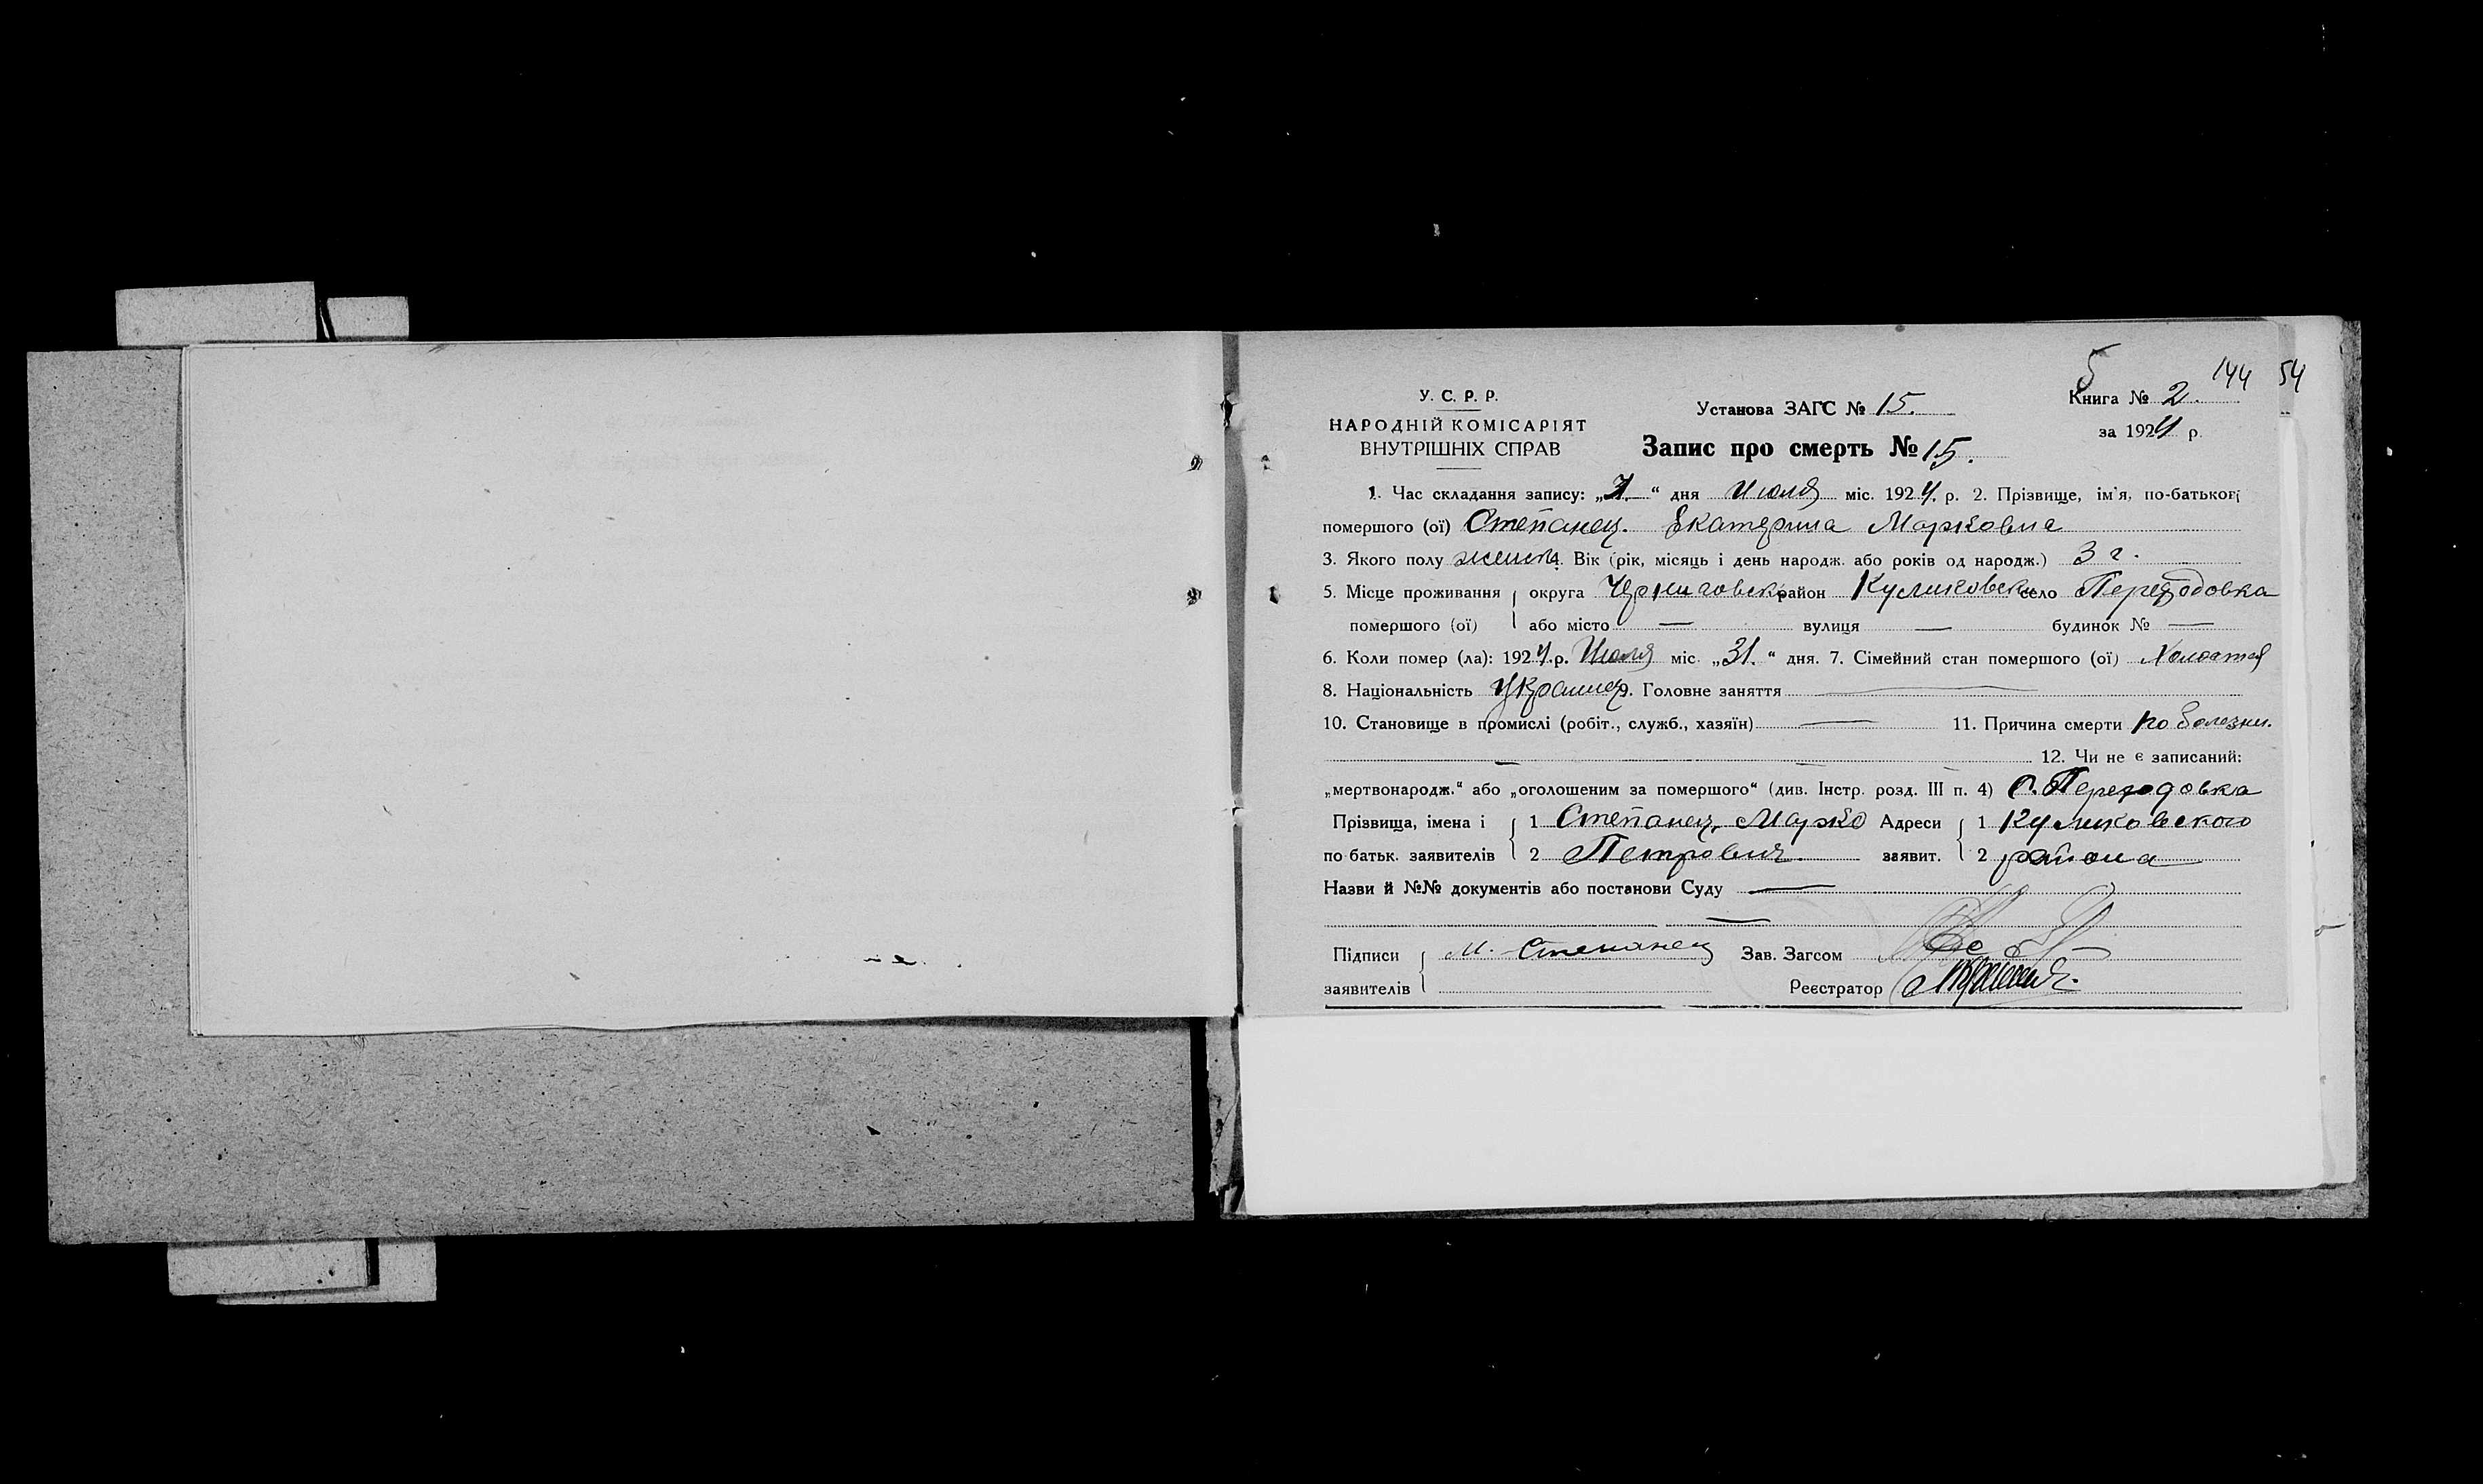 5
144 54
У. С. Р. Р.
НАРОДНІЙ КОМІСАРІЯТ
ВНУТРІШНІХ СПРАВ
Установа ЗАГС № 15.
Книга № 2.
за 1924 р.
Запис про смерть № 15.
1. Час складання запису: „ “ дня Июля міс. 1924. р. 2. Прізвище, ім'я, по-батькові
помершого (ої) Степанец. Екатерина Марковна
3. Якого полу женск 4. Вік (рік, місяць і день народж. або років од народж.) 3 г.
5. Місце проживання округа Черниговск район Куликовск село Переходовка
помершого (ої) або місто — вулиця — будинок № —
6. Коли помер (ла): 1924.р. Июля міс. „31.“ дня. 7. Сімейний стан помершого (ої) Холостая
8. Національність Украинец 9. Головне заняття —
10. Становище в промислі (робіт., служб., хазяїн) — 11. Причина смерти по болезни.
— 12. Чи не є записаний:
„мертвонародж.“ або „оголошеним за помершого“ (див. Інстр. розд. III п. 4) С. Переходовка
Прізвища, імена і 1 Степанец, Марко Адреси 1 Куликовского
по батьк. заявителів 2 Петрович. заявит. 2 района
Назви й №№ документів або постанови Суду —
—
Підписи М. Степанец Зав. Загсом
заявителів Реєстратор